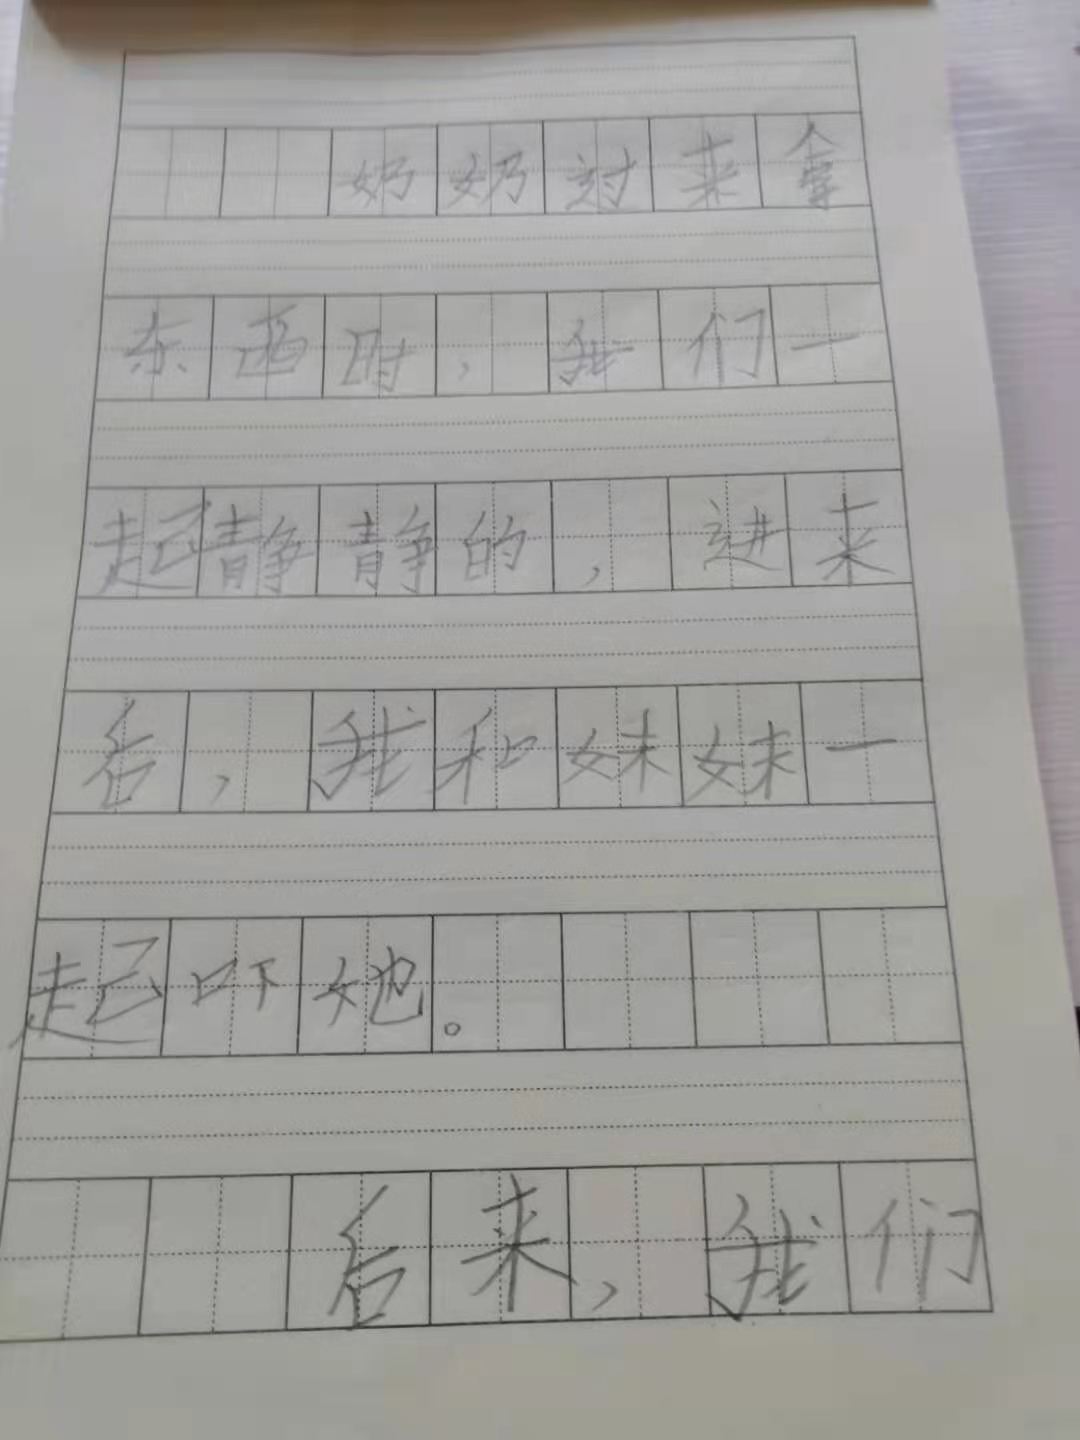 奶奶过来拿
东西时，我们一
起静静的，进来
后，我和妹妹一
起吓她。
后来，我们